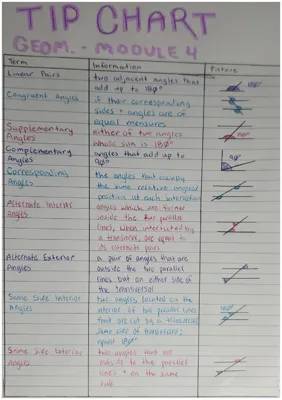 TIP CHART
GEOM. - MODULE 4
Term Information Picture
Linear Pairs two adjacent angles that
add up to 180° 180°
Congruent Angles if their corresponding
sides + angles are of
equal measures
Supplementary either of two angles
Angles whose sum is 180° 180°
Complementary angles that add up to
Angles 90° 90°
Corresponding the angles that occupy
Angles the same relative angular
position at each intersection
Alternate Interior angles which are
Angles inside the two parallel
lines, when intersected by
a transversal, are equal to
its alternate pairs
Alternate Exterior a pair of angles that are
Angles outside the two parallel
lines but on either side of
the transversal
Same Side Interior two angles located on the
Angles interior of two parallel lines
that are cut by a transversal
same side of transversal;
equal 180°
Same Side Interior two angles that are
Angles outside to the parallel
lines + on the same
side